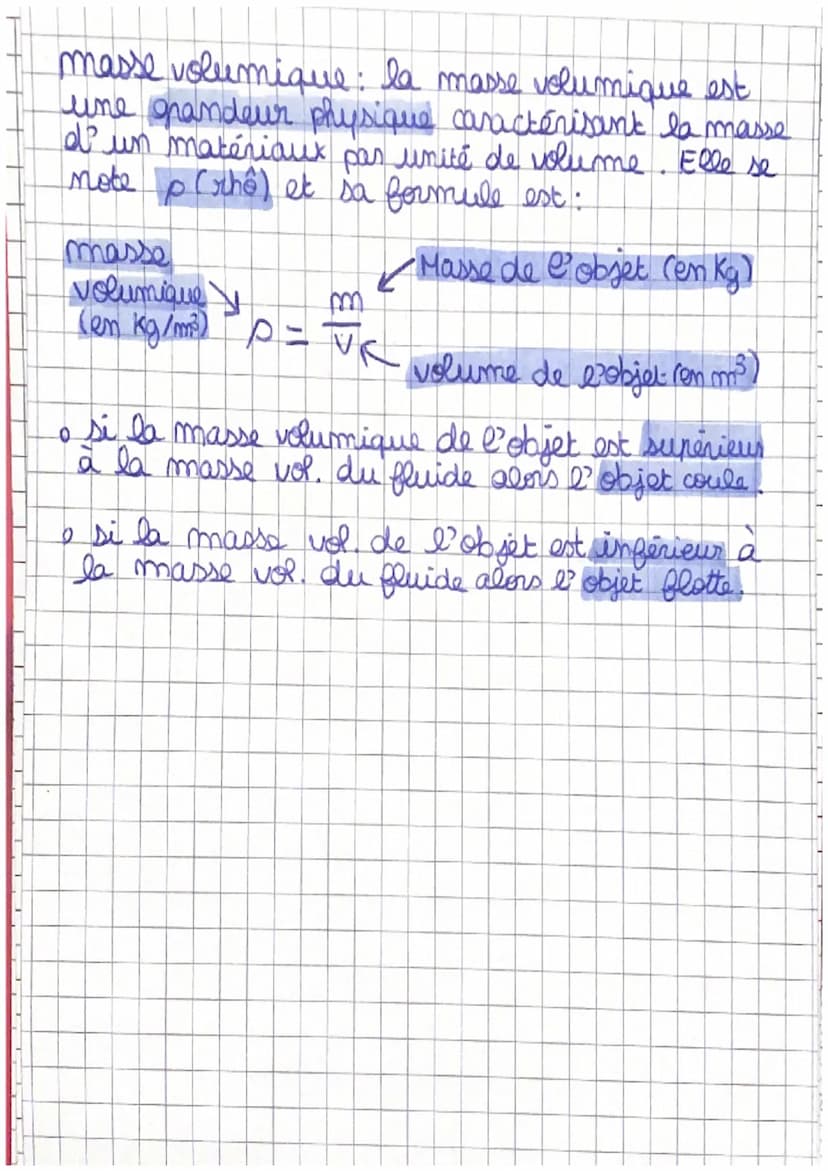 masse volumique : la masse volumique est
une grandeur physique caractérisant la masse
d'un matériaux par unité de volume. Elle se
note ρ (rhô) et sa formule est :
masse
volumique
(en kg/m³)
Masse de l'objet (en Kg)
ρ = m/v
volume de l'objet (en m³)
o si la masse volumique de l'objet est supérieur
à la masse vol. du fluide alors l'objet coule.
o si la masse vol. de l'objet est inférieur à
la masse vol. du fluide alors l'objet flotte.